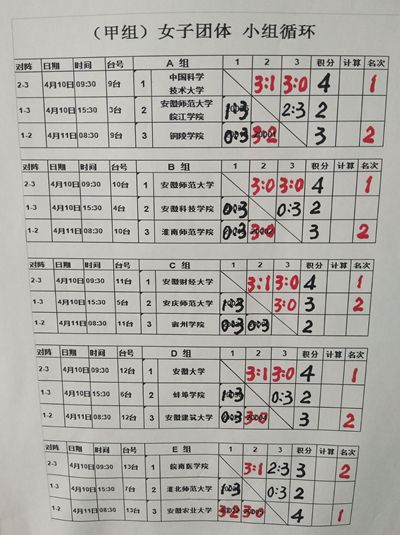 （甲组）女子团体 小组循环
对阵 日期 时间 台号 A 组 1 2 3 积分 计算 名次
2-3 4月10日 09:30 9台 1 中国科学技术大学 3:1 3:0 4 1
1-3 4月10日 15:30 3台 2 安徽师范大学皖江学院 1:3 2:3 2
1-2 4月11日 08:30 9台 3 铜陵学院 0:3 3:2 3 2
对阵 日期 时间 台号 B 组 1 2 3 积分 计算 名次
2-3 4月10日 09:30 10台 1 安徽师范大学 3:0 3:0 4 1
1-3 4月10日 15:30 4台 2 安徽科技学院 0:3 0:3 2
1-2 4月11日 08:30 10台 3 淮南师范学院 0:3 3:0 3 2
对阵 日期 时间 台号 C 组 1 2 3 积分 计算 名次
2-3 4月10日 09:30 11台 1 安徽财经大学 3:1 3:0 4 1
1-3 4月10日 15:30 5台 2 安庆师范大学 1:3 3:0 3 2
1-2 4月11日 08:30 11台 3 宿州学院 0:3 0:3 2
对阵 日期 时间 台号 D 组 1 2 3 积分 计算 名次
2-3 4月10日 09:30 12台 1 安徽大学 3:1 3:0 4 1
1-3 4月10日 15:30 6台 2 蚌埠学院 1:3 0:3 2
1-2 4月11日 08:30 12台 3 安徽建筑大学 0:3 3:0 3 2
对阵 日期 时间 台号 E 组 1 2 3 积分 计算 名次
2-3 4月10日 09:30 13台 1 皖南医学院 3:1 2:3 3 2
1-3 4月10日 15:30 7台 2 淮北师范大学 1:3 0:3 2
1-2 4月11日 08:30 13台 3 安徽农业大学 3:2 3:0 4 1